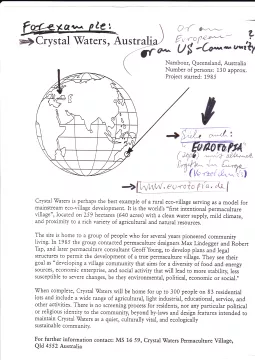 For example:
Or an
European- ?
or an US-Community
Crystal Waters, Australia
Nambour, Queensland, Australia
Number of persons: 130 approx.
Project started: 1985
EUROTOPIA
in Europe
www.eurotopia.de
Crystal Waters is perhaps the best example of a rural eco-village serving as a model for
mainstream eco-village development. It is the world's "first intentional permaculture
village", located on 259 hectares (640 acres) with a clean water supply, mild climate,
and proximity to a rich variety of agricultural and natural resources.
The site is home to a group of people who for several years pioneered community
living. In 1985 the group contacted permaculture designers Max Lindegger and Robert
Tap, and later permaculture consultant Geoff Young, to develop plans and legal
structures to permit the development of a true permaculture village. They see their
goal as "developing a village community that aims for a diversity of food and energy
sources, economic enterprise, and social activity that will lead to more stability, less
susceptible to severe changes, be they environmental, political, economic or social."
When complete, Crystal Waters will be home for up to 300 people on 83 residential
lots and include a wide range of agricultural, light industrial, educational, service, and
other activities. There is no screening process for residents, nor any particular political
or religious identity to the community, beyond by-laws and design features intended to
maintain Crystal Waters as a quiet, culturally vital, and ecologically
sustainable community.
For further information contact: MS 16 59, Crystal Waters Permaculture Village,
Qld 4552 Australia